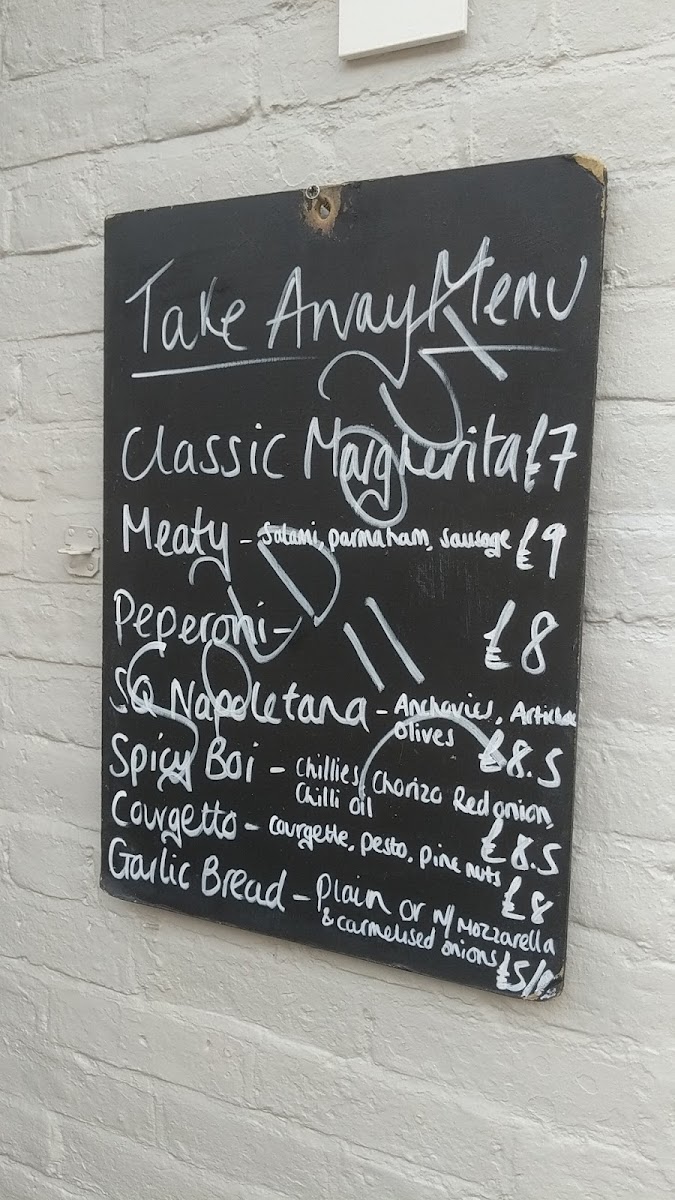 Take Away Menu
Classic Margherita £7
Meaty - Salami, parmaham, sausage £9
Peperoni - £8
SQ Napoletana - Anchovies, Artichoke
olives £8.5
Spicy Boi - Chillies, Chorizo Red onion,
Chilli oil £8.5
Courgetto - courgette, pesto, pine nuts £8
Garlic Bread - Plain or w/ Mozzarella
& carmelised onions